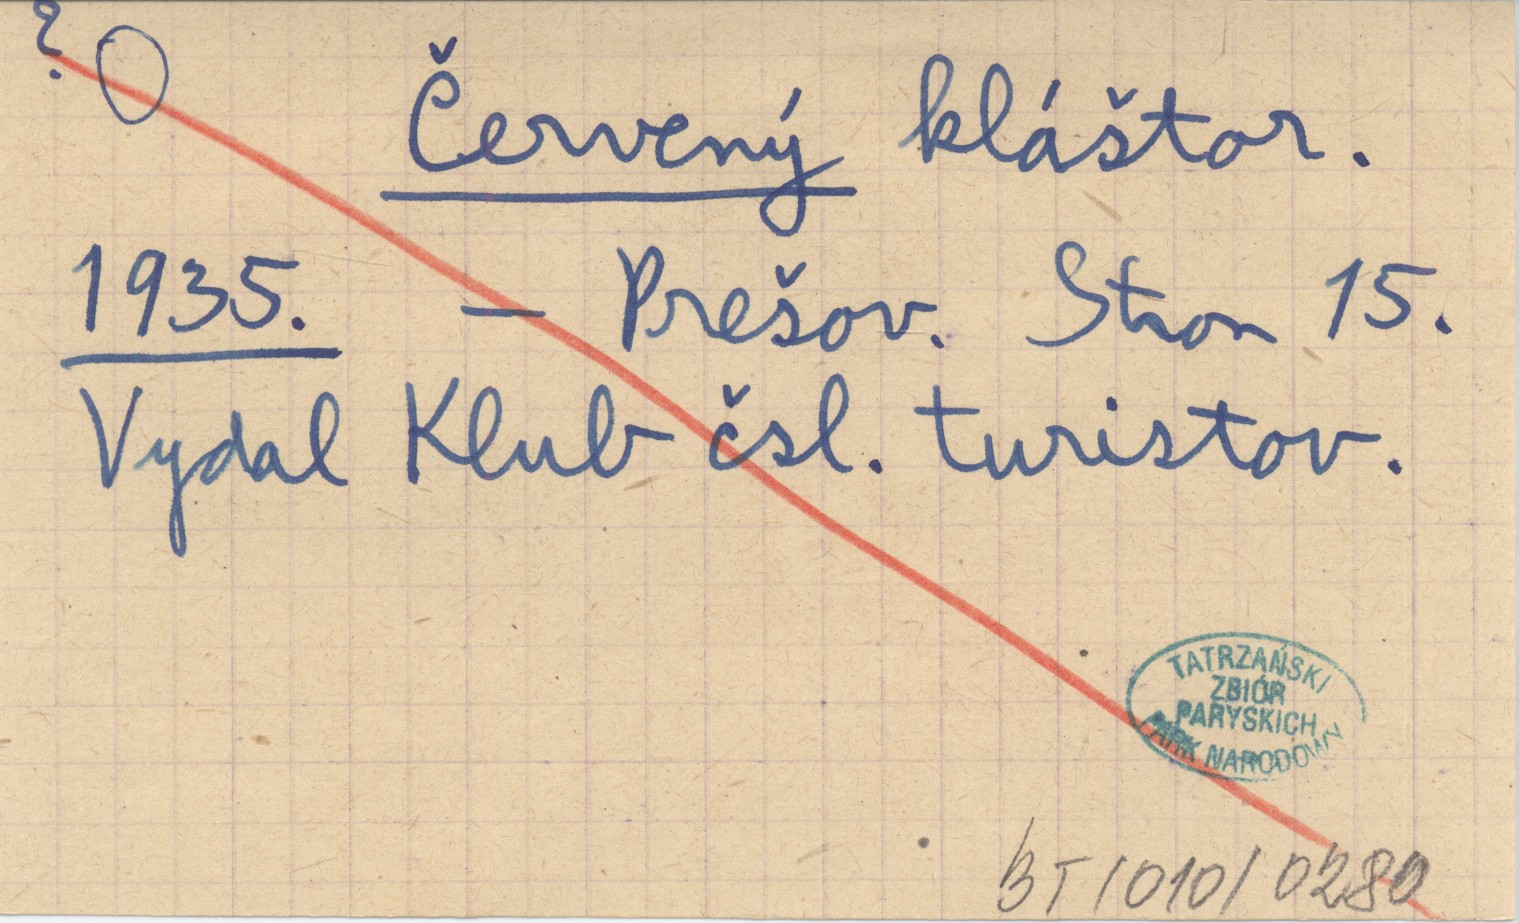 ?
Červený kláštor.
1935. — Prešov. Stron 15.
Vydal Klub čsl. turistov.
TATRZAŃSKI
ZBIÓR
PARYSKICH
PARK NARODOWY
BT/010/0280